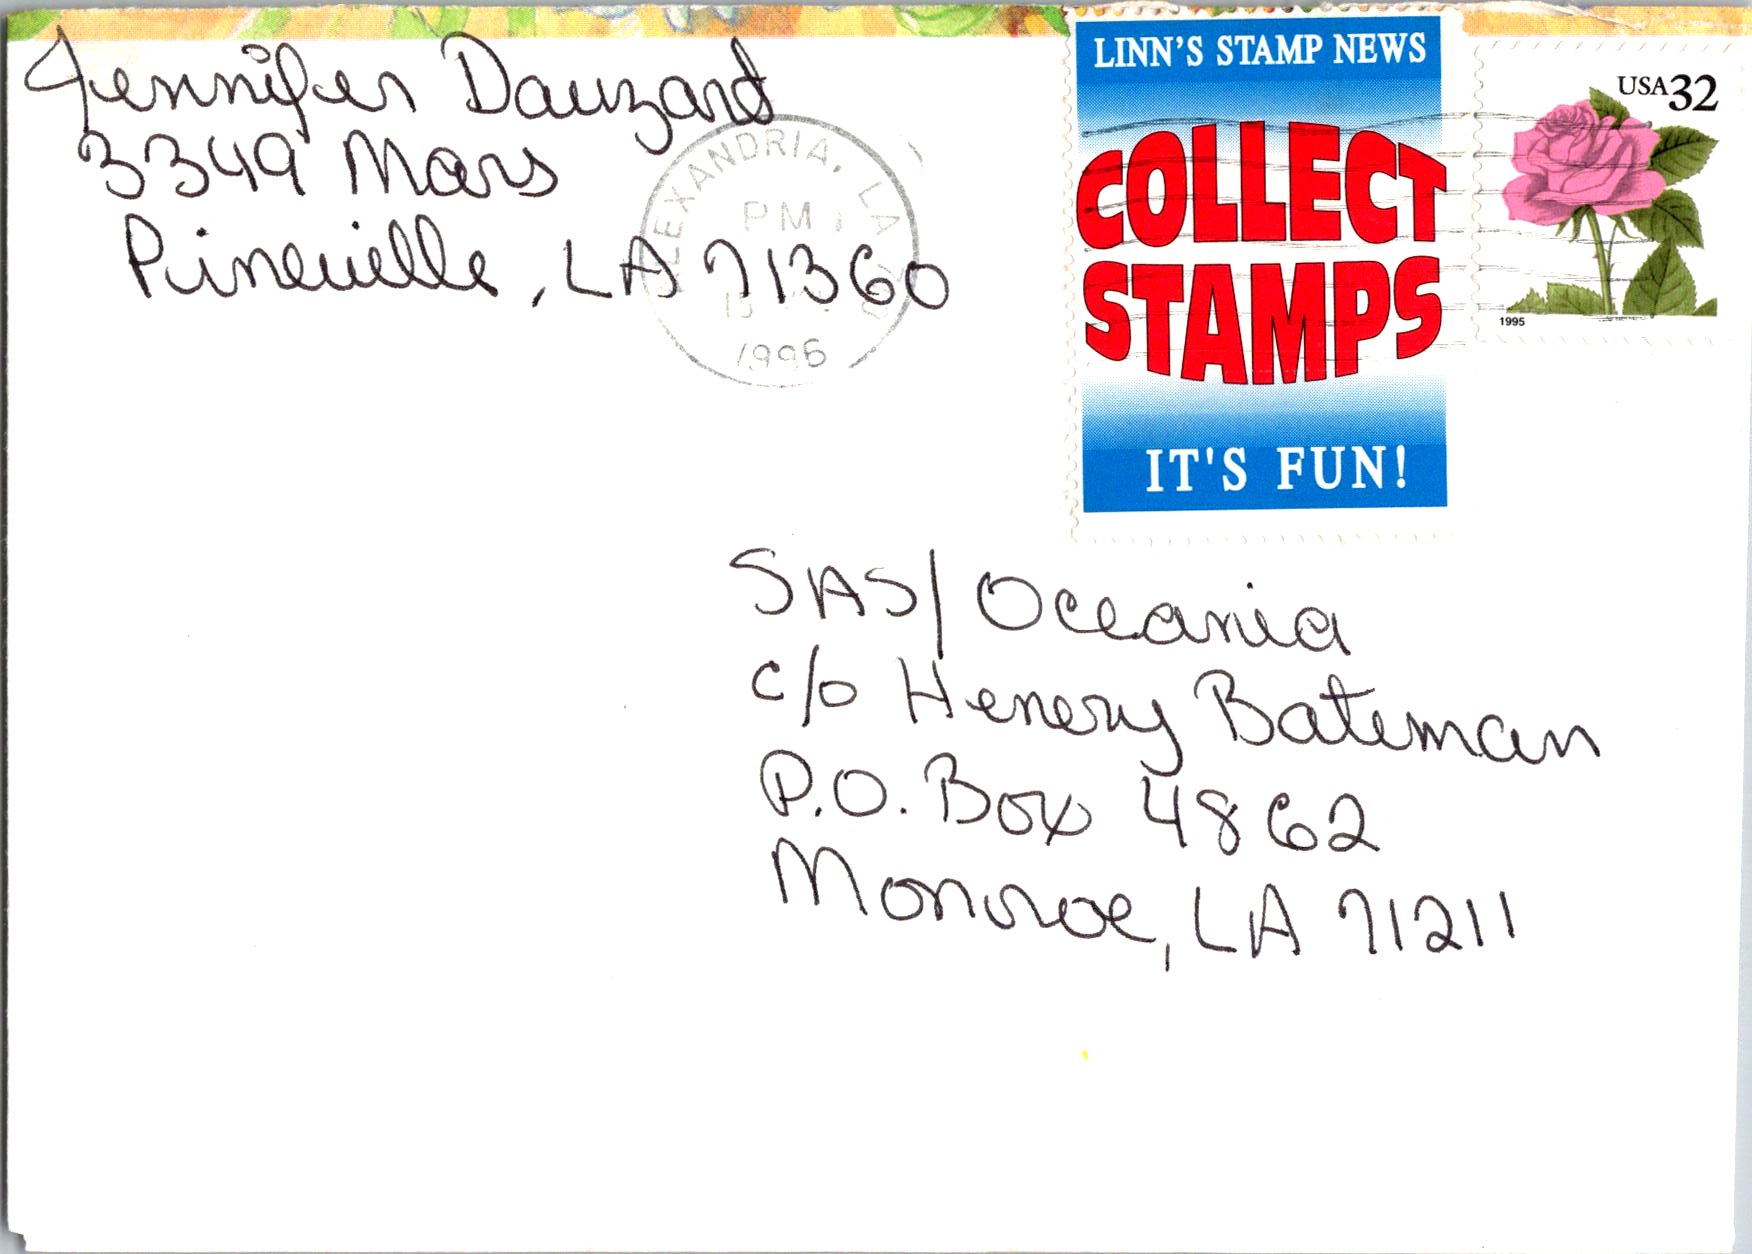 Jennifer Dauzard
3349 Mars
Pineville, LA 71360
ALEXANDRIA, LA
PM
1996
LINN'S STAMP NEWS
COLLECT
STAMPS
IT'S FUN!
USA 32
1995
SAS/Oceania
c/o Henery Bateman
P.O. Box 4862
Monroe, LA 71211